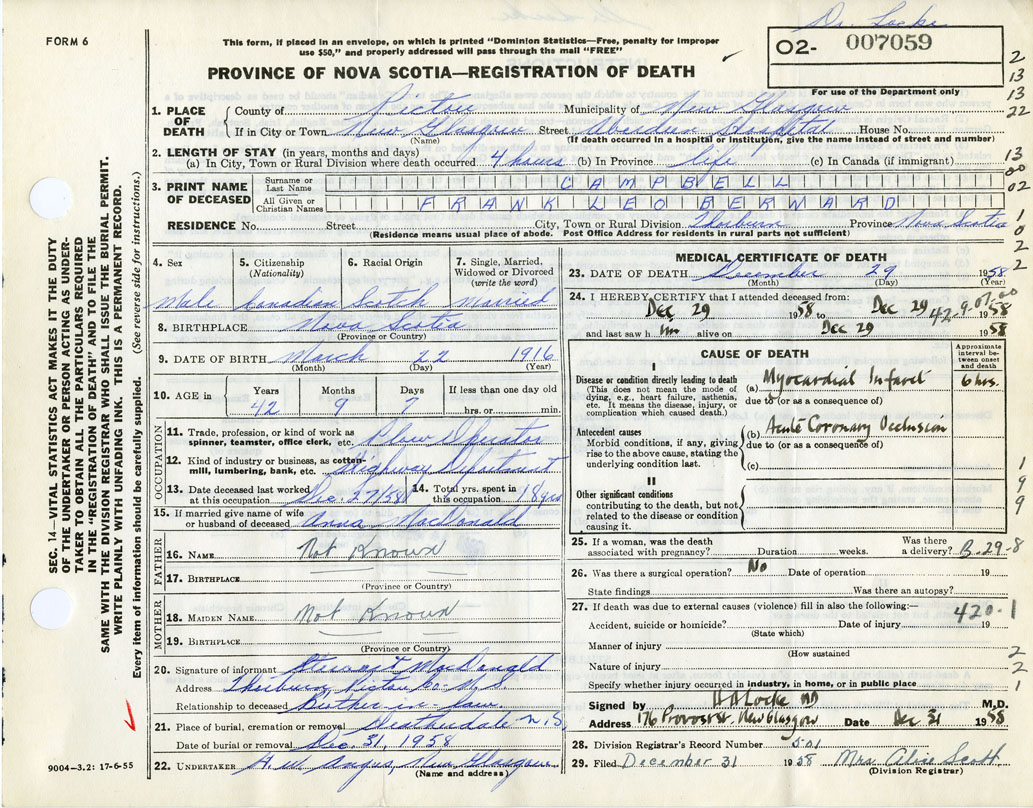 Dr. Locke
FORM 6
This form, if placed in an envelope, on which is printed "Dominion Statistics—Free, penalty for improper
use $50," and properly addressed will pass through the mail "FREE"
O2- 007059
For use of the Department only
PROVINCE OF NOVA SCOTIA—REGISTRATION OF DEATH
1. PLACE OF DEATH
County of Pictou Municipality of New Glasgow
If in City or Town New Glasgow Street Aberdeen Hospital House No.
(Name) (If death occurred in a hospital or institution, give the name instead of street and number)
2. LENGTH OF STAY (in years, months and days)
(a) In City, Town or Rural Division where death occurred 4 hours (b) In Province life (c) In Canada (if immigrant)
3. PRINT NAME OF DECEASED
Surname or Last Name CAMPBELL
All Given or Christian Names FRANK LEO BERWARD
RESIDENCE No. Street City, Town or Rural Division Thorburn Province Nova Scotia
(Residence means usual place of abode. Post Office Address for residents in rural parts not sufficient)
4. Sex 5. Citizenship (Nationality) 6. Racial Origin 7. Single, Married, Widowed or Divorced (write the word)
Male Canadian Scotch Married
8. BIRTHPLACE Nova Scotia
(Province or Country)
9. DATE OF BIRTH March 22 1916
(Month) (Day) (Year)
10. AGE in Years Months Days If less than one day old
42 9 7 hrs. or min.
OCCUPATION
11. Trade, profession, or kind of work as
spinner, teamster, office clerk, etc. Plow Operator
12. Kind of industry or business, as cotton-
mill, lumbering, bank, etc. Highway Department
13. Date deceased last worked at this occupation Dec. 27/58 14. Total yrs. spent in this occupation 18 yrs
15. If married give name of wife
or husband of deceased Anna MacDonald
FATHER
16. NAME Not Known
17. BIRTHPLACE
(Province or Country)
MOTHER
18. MAIDEN NAME Not Known
19. BIRTHPLACE
(Province or Country)
20. Signature of informant Stewart MacDonald
Address Thorburn, Pictou Co. N.S.
Relationship to deceased Brother-in-law.
21. Place of burial, cremation or removal Heatherdale N.S.
Date of burial or removal Dec. 31, 1958
22. UNDERTAKER H.W. Angus, New Glasgow
(Name and address)
MEDICAL CERTIFICATE OF DEATH
23. DATE OF DEATH December 29 1958
(Month) (Day) (Year)
24. I HEREBY CERTIFY that I attended deceased from:
Dec 29 1958 to Dec 29 1958
42-9-07-00
and last saw him alive on Dec 29 1958
CAUSE OF DEATH
Approximate interval between onset and death
I
Disease or condition directly leading to death
(This does not mean the mode of
dying, e.g., heart failure, asthenia,
etc. It means the disease, injury, or
complication which caused death.)
(a) Myocardial Infarct 6 hrs.
due to (or as a consequence of)
Antecedent causes
Morbid conditions, if any, giving
rise to the above cause, stating the
underlying condition last.
(b) Acute Coronary Occlusion
due to (or as a consequence of)
(c)
II
Other significant conditions
contributing to the death, but not
related to the disease or condition
causing it.
25. If a woman, was the death
associated with pregnancy? Duration weeks. Was there a delivery? B-29-8
26. Was there a surgical operation? No Date of operation 19
State findings Was there an autopsy?
27. If death was due to external causes (violence) fill in also the following:—
420-1
Accident, suicide or homicide? Date of injury 19
(State which)
Manner of injury
(How sustained
Nature of injury
Specify whether injury occurred in industry, in home, or in public place
Signed by H A Locke MD M.D.
Address 176 Provost St. New Glasgow Date Dec 31 1958
28. Division Registrar's Record Number 501
29. Filed December 31 1958 Mrs Alice Scott
(Division Registrar)
2
13
13
22
13
00
02
1
0
2
2
1
9
9
2
2
1
SEC. 14—VITAL STATISTICS ACT MAKES IT THE DUTY
OF THE UNDERTAKER OR PERSON ACTING AS UNDER-
TAKER TO OBTAIN ALL THE PARTICULARS REQUIRED
IN THE "REGISTRATION OF DEATH" AND TO FILE THE
SAME WITH THE DIVISION REGISTRAR WHO SHALL ISSUE THE BURIAL PERMIT.
WRITE PLAINLY WITH UNFADING INK. THIS IS A PERMANENT RECORD.
Every item of information should be carefully supplied. (See reverse side for instructions.)
9004—3.2: 17-6-55